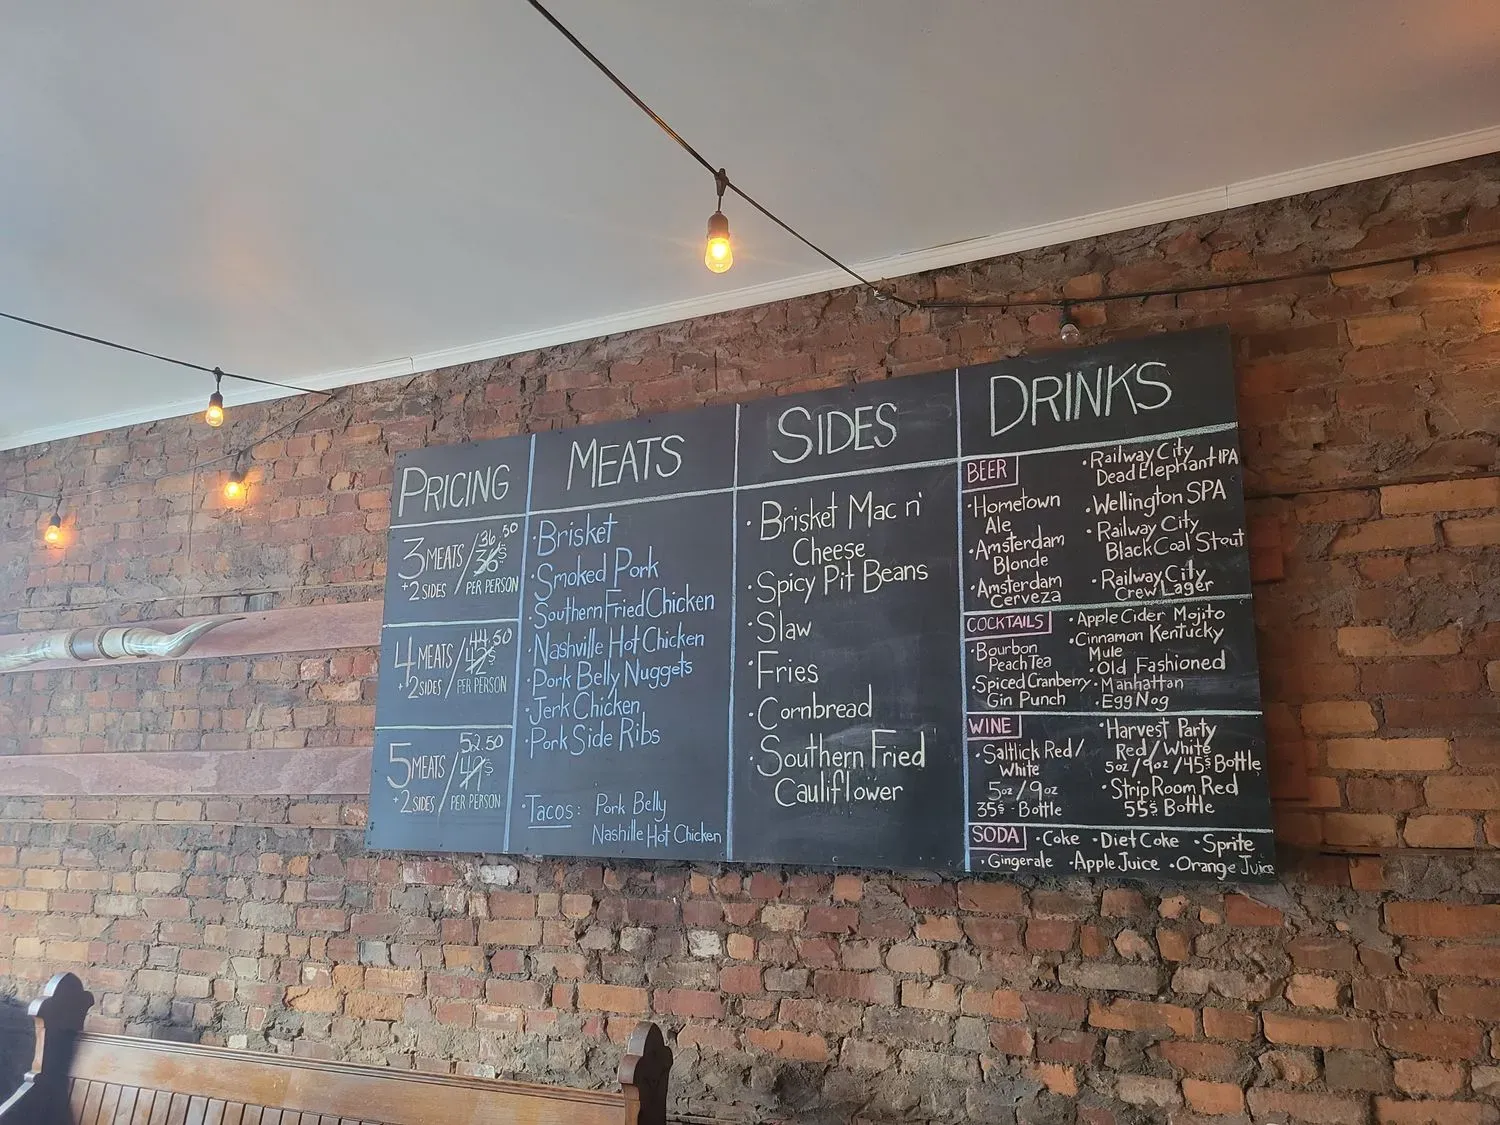 PRICING
3 MEATS / 36.50
+2 SIDES PER PERSON
4 MEATS / 44.50
+2 SIDES PER PERSON
5 MEATS / 52.50
+2 SIDES PER PERSON
MEATS
·Brisket
·Smoked Pork
·Southern Fried Chicken
·Nashville Hot Chicken
·Pork Belly Nuggets
·Jerk Chicken
·Pork Side Ribs
·Tacos: Pork Belly
Nashille Hot Chicken
SIDES
·Brisket Mac n'
Cheese
·Spicy Pit Beans
·Slaw
·Fries
·Cornbread
·Southern Fried
Cauliflower
DRINKS
BEER
·Hometown
Ale
·Amsterdam
Blonde
·Amsterdam
Cerveza
·Railway City
Dead Elephant IPA
·Wellington SPA
·Railway City
Black Coal Stout
·Railway City
Crew Lager
COCKTAILS
·Bourbon
Peach Tea
·Spiced Cranberry
Gin Punch
·Apple Cider Mojito
·Cinnamon Kentucky
Mule
·Old Fashioned
·Manhattan
·Egg Nog
WINE
·Saltlick Red/
White
5oz/9oz
35$ - Bottle
·Harvest Party
Red/White
5oz/9oz/45$ Bottle
·Strip Room Red
55$ Bottle
SODA ·Coke ·Diet Coke ·Sprite
·Gingerale ·Apple Juice ·Orange Juice